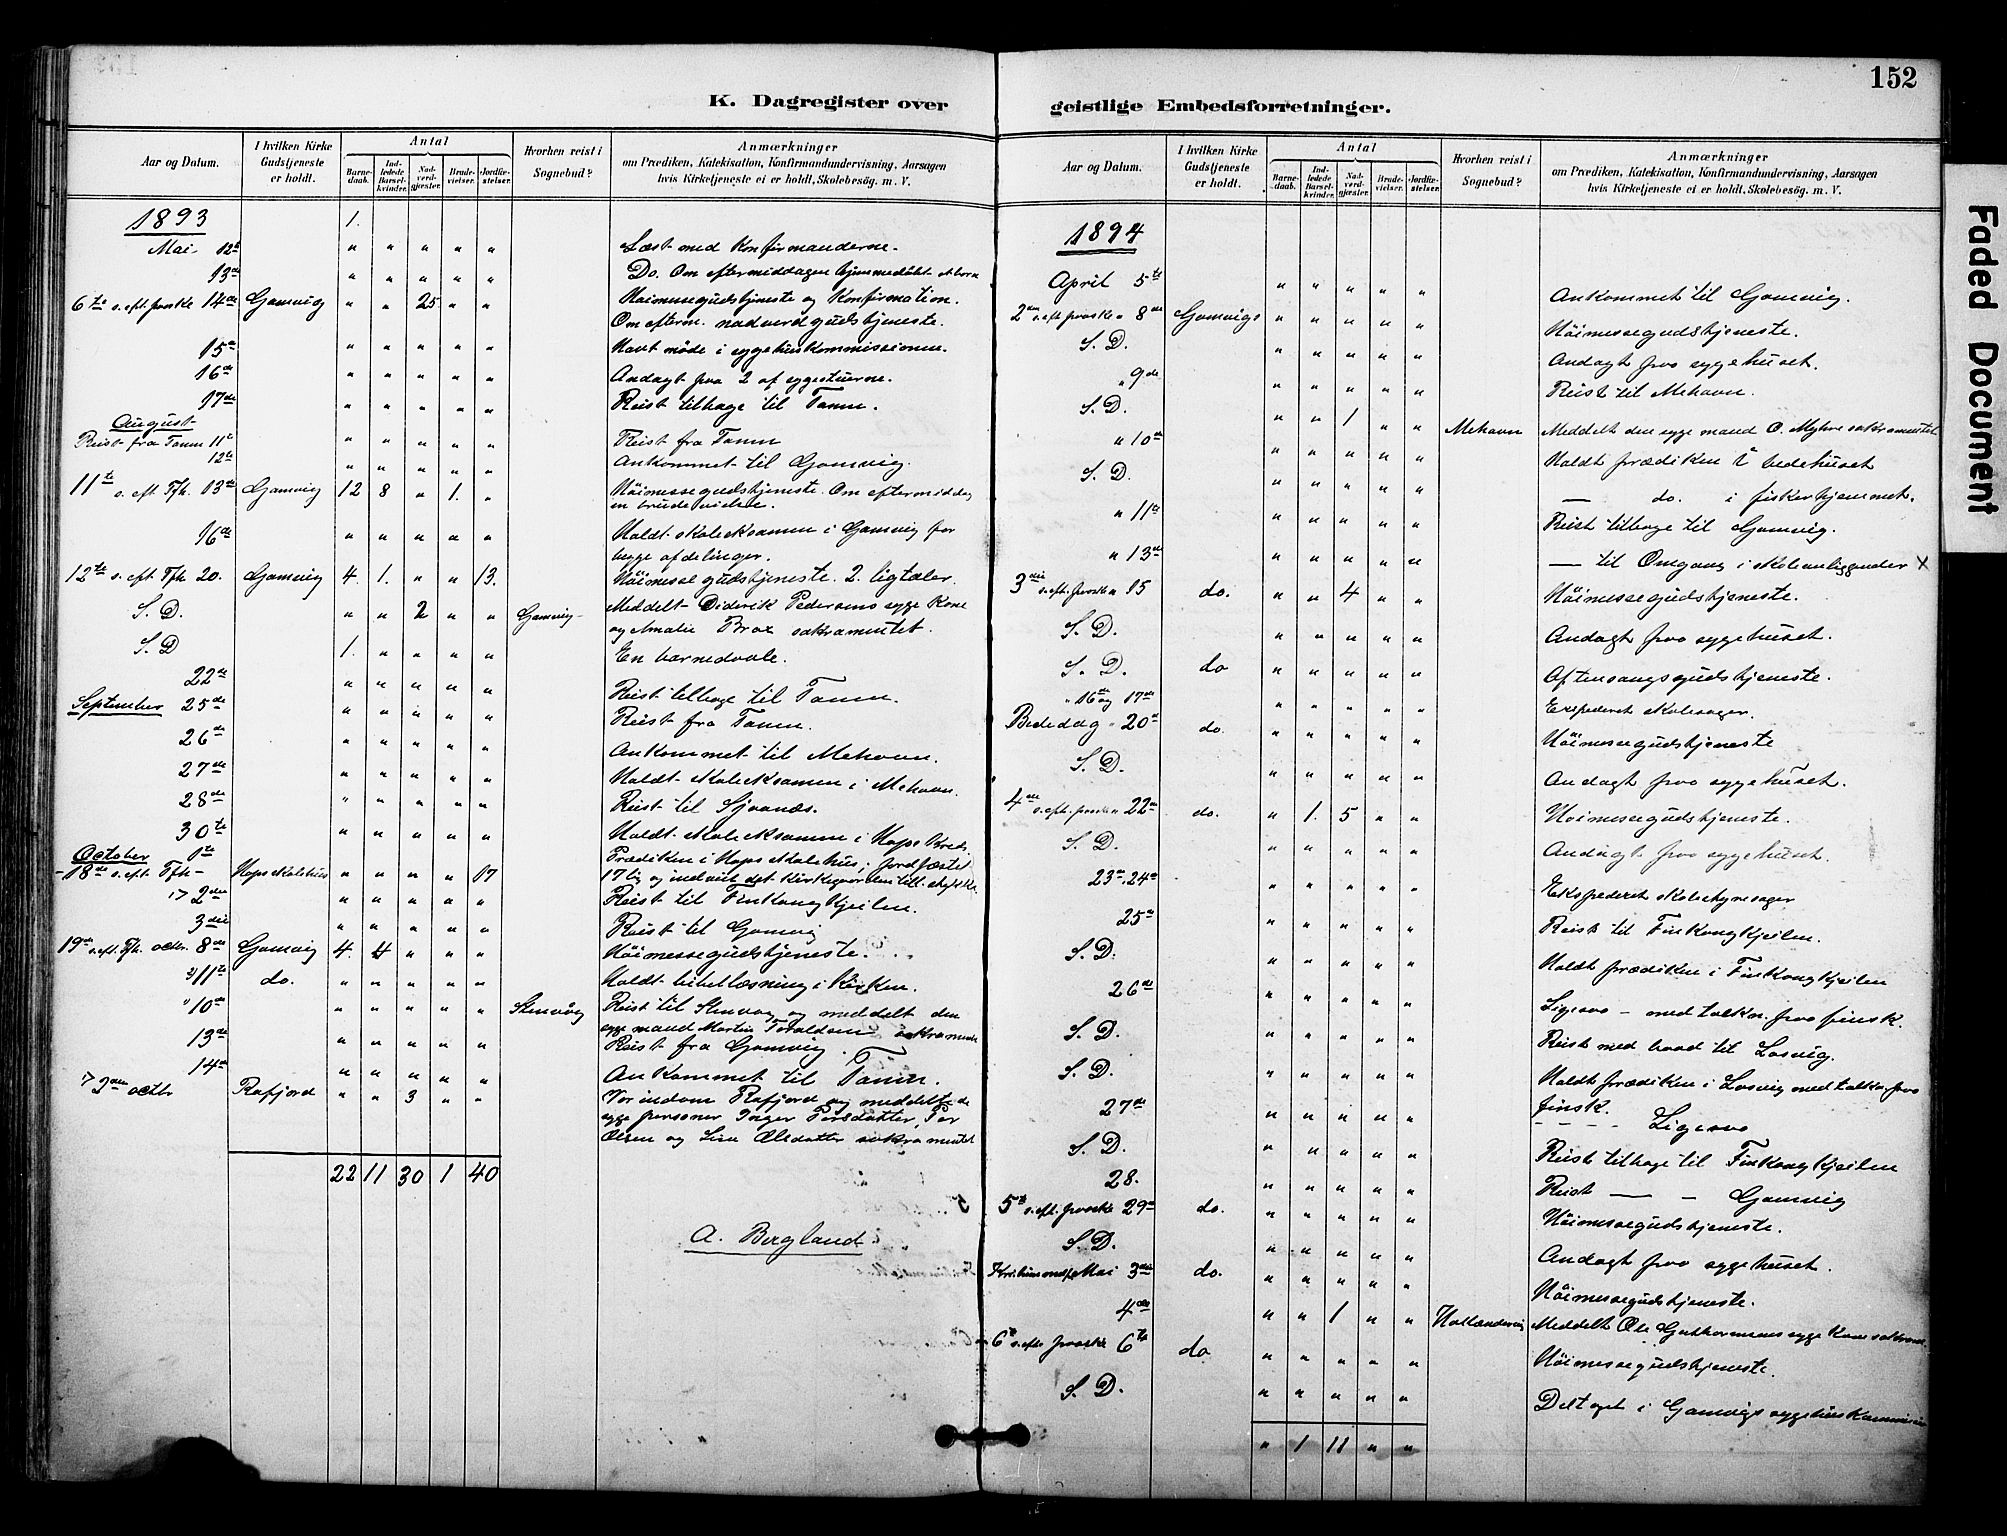 152
K. Dagregister over geistlige Embedsforretninger.
Faded Document
Aar og Datum.
I hvilken Kirke Gudstjeneste er holdt.
Antal
Barnedaab.
Indledede Barselkvinder.
Nadverdgjester.
Brudevielser.
Jordfæstelser.
Hvorhen reist i Sognebud?
Anmærkninger
om Prædiken, Katekisation, Konfirmandundervisning, Aarsagen
hvis Kirketjeneste ei er holdt, Skolebesøg. m. V.
1893 1.
Mai 12te " " " " " Læst med Konfirmanderne.
13de " " " " " Do. Om eftermiddagen hjemmedøbt et barn
6te s. eft. paaske 14de Gamvig " " 25 " " Høimessegudstjeneste og Konfirmation.
Om efterm. nadverdgudstjeneste.
15de " " " " " Havt møde i sygehuskommissionen.
16de " " " " " Andagt paa 2 af sygestuerne.
17de " " " " " Reist tilbage til Tanen.
August
Reist fra Tanen 11te " " " " " Reist fra Tanen
12te " " " " " Ankommet til Gamvig.
11te s. eft. Tfh. 13de Gamvig 12 8 " 1. " Høimessegudstjeneste. Om eftermiddag
en brudevielse.
16de " " " " " Holdt skoleeksamen i Gamvig for
begge afdelinger.
12te s. eft. Tfh 20. Gamvig 4. 1. " " 13. Høimessegudstjeneste. 2 ligtaler.
S. D. " " 2 " " Gamvig Meddelt Diderik Pedersens syge Kone
og Amalie Brox sakramentet.
S. D 1. " " " " En barnedaab.
22de " " " " " Reist tilbage til Tanen.
September 25de " " " " " Reist fra Tanen.
26de " " " " " Ankommet til Mehavn.
27de " " " " " Holdt skoleeksamen i Mehavn.
28de " " " " " Reist til Sjaanæs.
30te " " " " " Holdt skoleeksamen i Hops Kreds.
October 1te
18de s. eft. Tfh Hops skolehus " " " " 17 Prædiken i Hops skolehus; jordfæstet
17 lig og indviet det
" 2den " " " " " Reist til Finkongkjeilen.
3die " " " " " Reist til Gamvig
19de s. eft. Tfh. octbr. 8de Gamvig 4. 4 " " " Høimessegudstjeneste.
" 11te do. " " " " " Holdt bibellæsning i Kirken.
" 10de " " " " " Stenvåg Reist til Stenvåg og meddelt den
syge mand Martin Toraldsen sakramentet
13de " " " " " Reist fra Gamvig.
14de " " " " " Ankommet til Tanen.
" 2den octbr Rafjord " " 3 " " Var indom Rafjord og meddelte de
syge personer Inger Persdatter, Per
Olsen og Lisa Olsdatter sakramentet
22 11 30 1 40
A. Bergland
Aar og Datum.
I hvilken Kirke Gudstjeneste er holdt.
Antal
Barnedaab.
Indledede Barselkvinder.
Nadverdgjester.
Brudevielser.
Jordfæstelser.
Hvorhen reist i Sognebud?
Anmærkninger
om Prædiken, Katekisation, Konfirmandundervisning, Aarsagen
hvis Kirketjeneste ei er holdt, Skolebesøg. m. V.
1894
April 5te " " " " " Ankommet til Gamvig.
2den s. eft. paaske " 8de Gamvigs " " " " " Høimessegudstjeneste.
S. D. " " " " " Andagt paa sygehuset.
" 9de " " " " " Reist til Mehavn.
S. D. " " 1 " " Mehavn Meddelt den syge mand O. Myhre sakramentet
" 10de " " " " " Holdt prædiken i bedehuset
S. D. " " " " " — do. i fiskerhjemmet.
" 11te " " " " " Reist tilbage til Gamvig.
" 13de " " " " " — til Omgang i skoleanliggender X
3die s. eft. paaske " 15 do. " " 4 " " Høimessegudstjeneste.
S. D. " " " " " Andagt paa sygehuset.
S. D. do " " " " " Aftensangsgudstjeneste.
" 16de og 17de " " " " " Expederet skolesager.
Bededag " 20de do. " " " " " Høimessegudstjeneste
S. D. " " " " " Andagt paa sygehuset.
4de s. eft. paaske " 22de do. " 1. 5 " " Høimessegudstjeneste.
S. D. " " " " " Andagt paa sygehuset.
23de, 24de " " " " " Ekspederet skolestyresager
25de " " " " " Reist til Finkongkjeilen.
S. D. " " " " " Holdt prædiken i Finkongkjeilen
26de " " " " " Ligesaa – med tolken paa finsk.
S. D. " " " " " Reist med baad til Losvig.
S. D. " " " " " Holdt prædiken i Losvig med tolken paa
finsk.
27de " " " " " - - - - Ligesaa
S. D. " " " " " Reist tilbage til Finkongkjeilen
28. " " " " " Reist — – Gamvig
5te s. eft. paaske 29de do. " " " " " Høimessegudstjeneste.
S. D. " " " " " Andagt paa sygehuset.
Mai 3die do. " " " " " Høimessegudstjeneste.
4de " " 1 " " Hollændervig Meddelt Ole Guthormsens syge Kone
6te s. efter paaske 6te do " " " " " Høimessegudstjeneste.
S. D. " " " " " Deltaget i Gamvigs sygehuskommission
" 1 11 " "